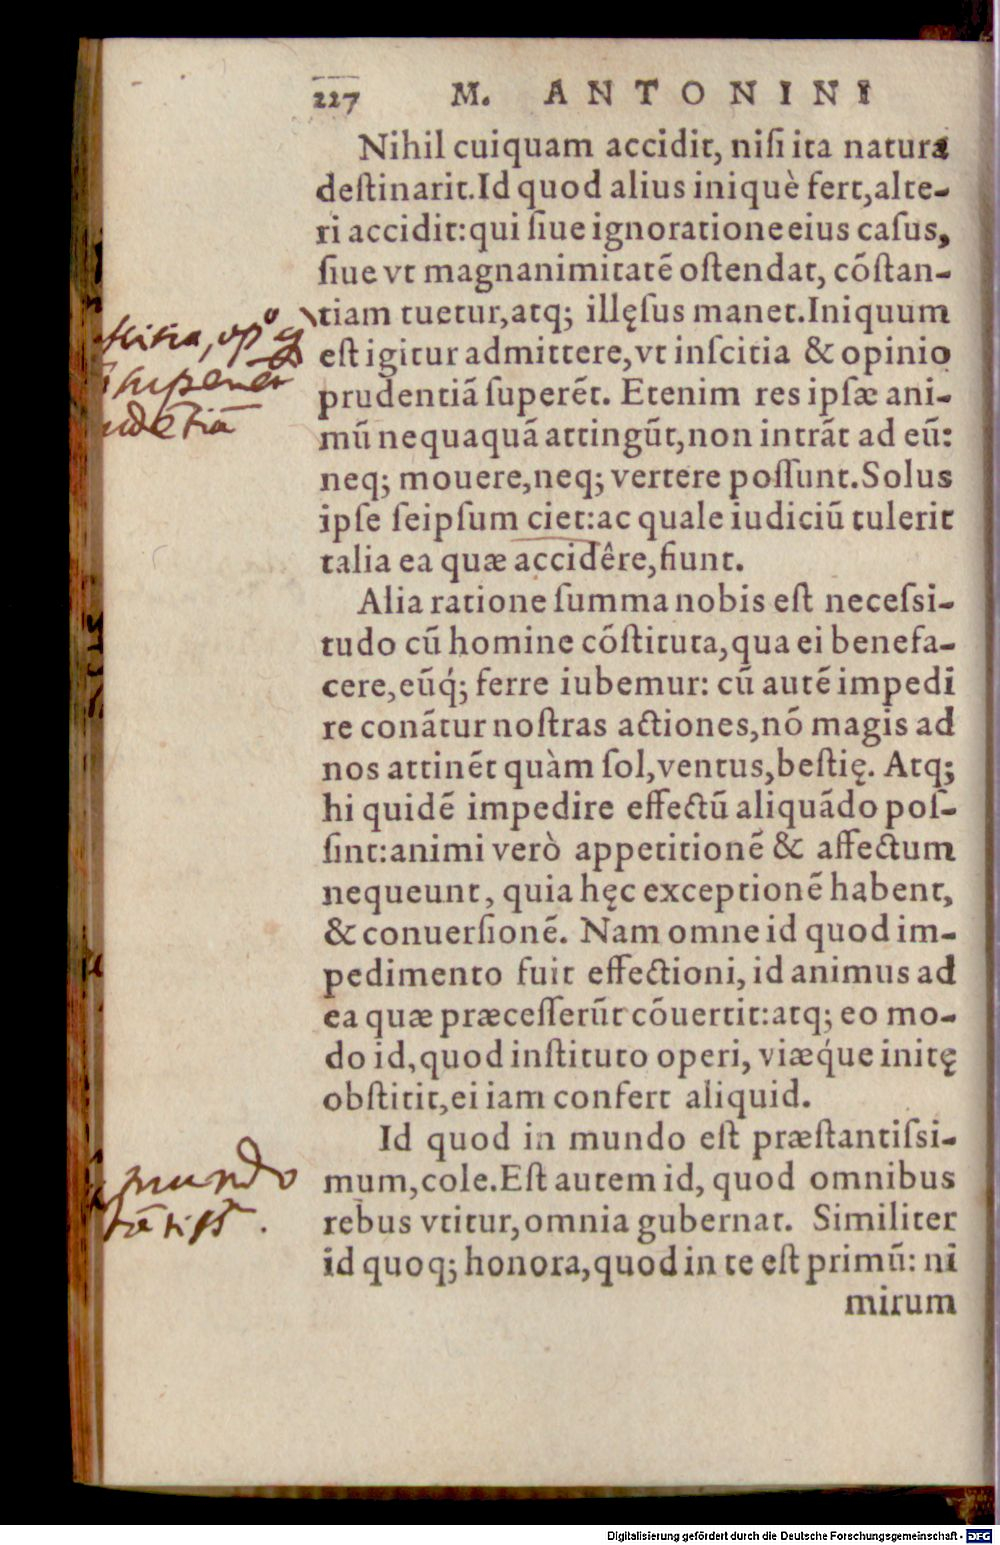 227 M. ANTONINI
Nihil cuiquam accidit, niſi ita natura
deſtinarit.Id quod alius iniquè fert,alte-
ri accidit:qui ſiue ignoratione eius caſus,
ſiue vt magnanimitatē oſtendat, cōſtan-
tiam tuetur,atq; illęſus manet.Iniquum
eſt igitur admittere,vt inſcitia & opinio
prudentiā ſuperēt. Etenim res ipſæ ani-
mū nequaquā attingūt,non intrāt ad eū:
neq; mouere,neq; vertere poſſunt.Solus
ipſe ſeipſum ciet:ac quale iudiciū tulerit
talia ea quæ accidêre,fiunt.
Alia ratione ſumma nobis eſt neceſsi-
tudo cū homine cōſtituta,qua ei benefa-
cere,eūq́; ferre iubemur: cū autē impedi
re conātur noſtras actiones,nō magis ad
nos attinēt quàm ſol,ventus,beſtię. Atq;
hi quidē impedire effectū aliquādo poſ-
ſint:animi verò appetitionē & affectum
nequeunt, quia hęc exceptionē habent,
& conuerſionē. Nam omne id quod im-
pedimento fuit effectioni, id animus ad
ea quæ præceſſerūt cōuertit:atq; eo mo-
do id,quod inſtituto operi, viæq́ue initę
obſtitit,ei iam confert aliquid.
Id quod in mundo eſt præſtantiſsi-
mum,cole.Eſt autem id, quod omnibus
rebus vtitur,omnia gubernat. Similiter
id quoq; honora,quod in te eſt primū: ni
mirum
mundo
Digitalisierung gefördert durch die Deutsche Forschungsgemeinschaft - DFG